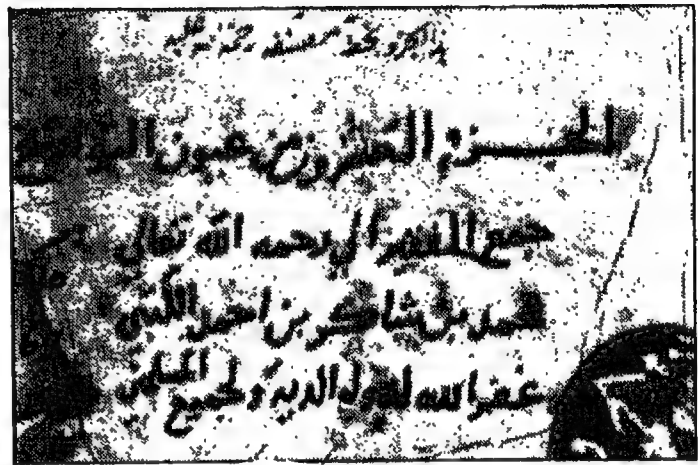 الجزو بخط مصنفه رحمة الله عليه
الجزء العشرون من عيون التواريخ
جمع الفقير الى رحمه الله تعالى
محمد بن شاكر بن احمد الكتبي
غفر الله له ولوالديه ولجميع المسلمين